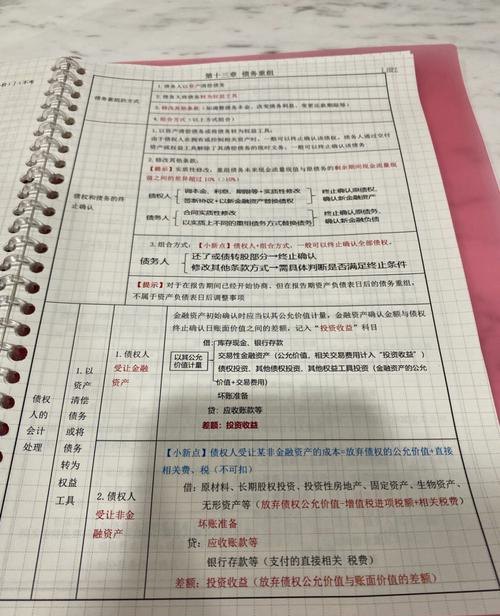 第十三章 债务重组
债务重组的方式
1. 债务人以资产清偿债务
2. 债务人将债务转为权益工具
3. 修改其他条款（如调整债务本金、改变债务利息、变更还款期限等）
4. 组合方式（以上方式组合）
债权和债务的终止确认
1. 以资产清偿债务或将债务转为权益工具：
由于债权人在拥有或控制相关资产时，一般可以终止确认该债权，债务人通过交付
资产或权益工具解除了其清偿债务的现时义务，一般可以终止确认该债务。
2. 修改其他条款：
【提示】实质性修改：重组债务未来现金流量现值与原债务的剩余期间现金流量现
值之间的差异超过 10%
债权人
调本金、利息、期限等+实质性修改
签新协议+以新金融资产替换债权
终止确认原债权，
确认新金融资产
债务人
合同实质性修改
以实质上不同的重组债务方式替换债务
终止确认原债务，
确认新金融负债
3. 组合方式：【小新点】债权人+组合方式，一般可以终止确认全部债权。
债务人
还了或债转股部分→终止确认
修改其他条款方式→需具体判断是否满足终止条件
【提示】对于在报告期间已经开始协商、但在报告期资产负债表日后的债务重组，
不属于资产负债表日后调整事项
债权人的会计处理
1. 以资产清偿债务或将债务转为权益工具
1. 债权人
受让金融
资产
金融资产初始确认时应当以其公允价值计量，金融资产确认金额与债权
终止确认日账面价值之间的差额，记入“投资收益”科目
以其公允
价值计量
借：库存现金、银行存款
交易性金融资产（公允价值，相关交易费用计入“投资收益”）
债权投资、其他债权投资、其他权益工具投资（金融资产的公允
价值+交易费用）
坏账准备
贷：应收账款等
差额：投资收益
2. 债权人
受让非金
融资产
【小新点】债权人受让某非金融资产的成本=放弃债权的公允价值+直接
相关费、税（不可扣）
借：原材料、长期股权投资、投资性房地产、固定资产、生物资产、
无形资产等（放弃债权公允价值-增值税进项税额+相关税费）
坏账准备
贷：应收账款等
银行存款等（支付的直接相关 税费）
差额：投资收益（放弃债权公允价值与账面价值的差额）